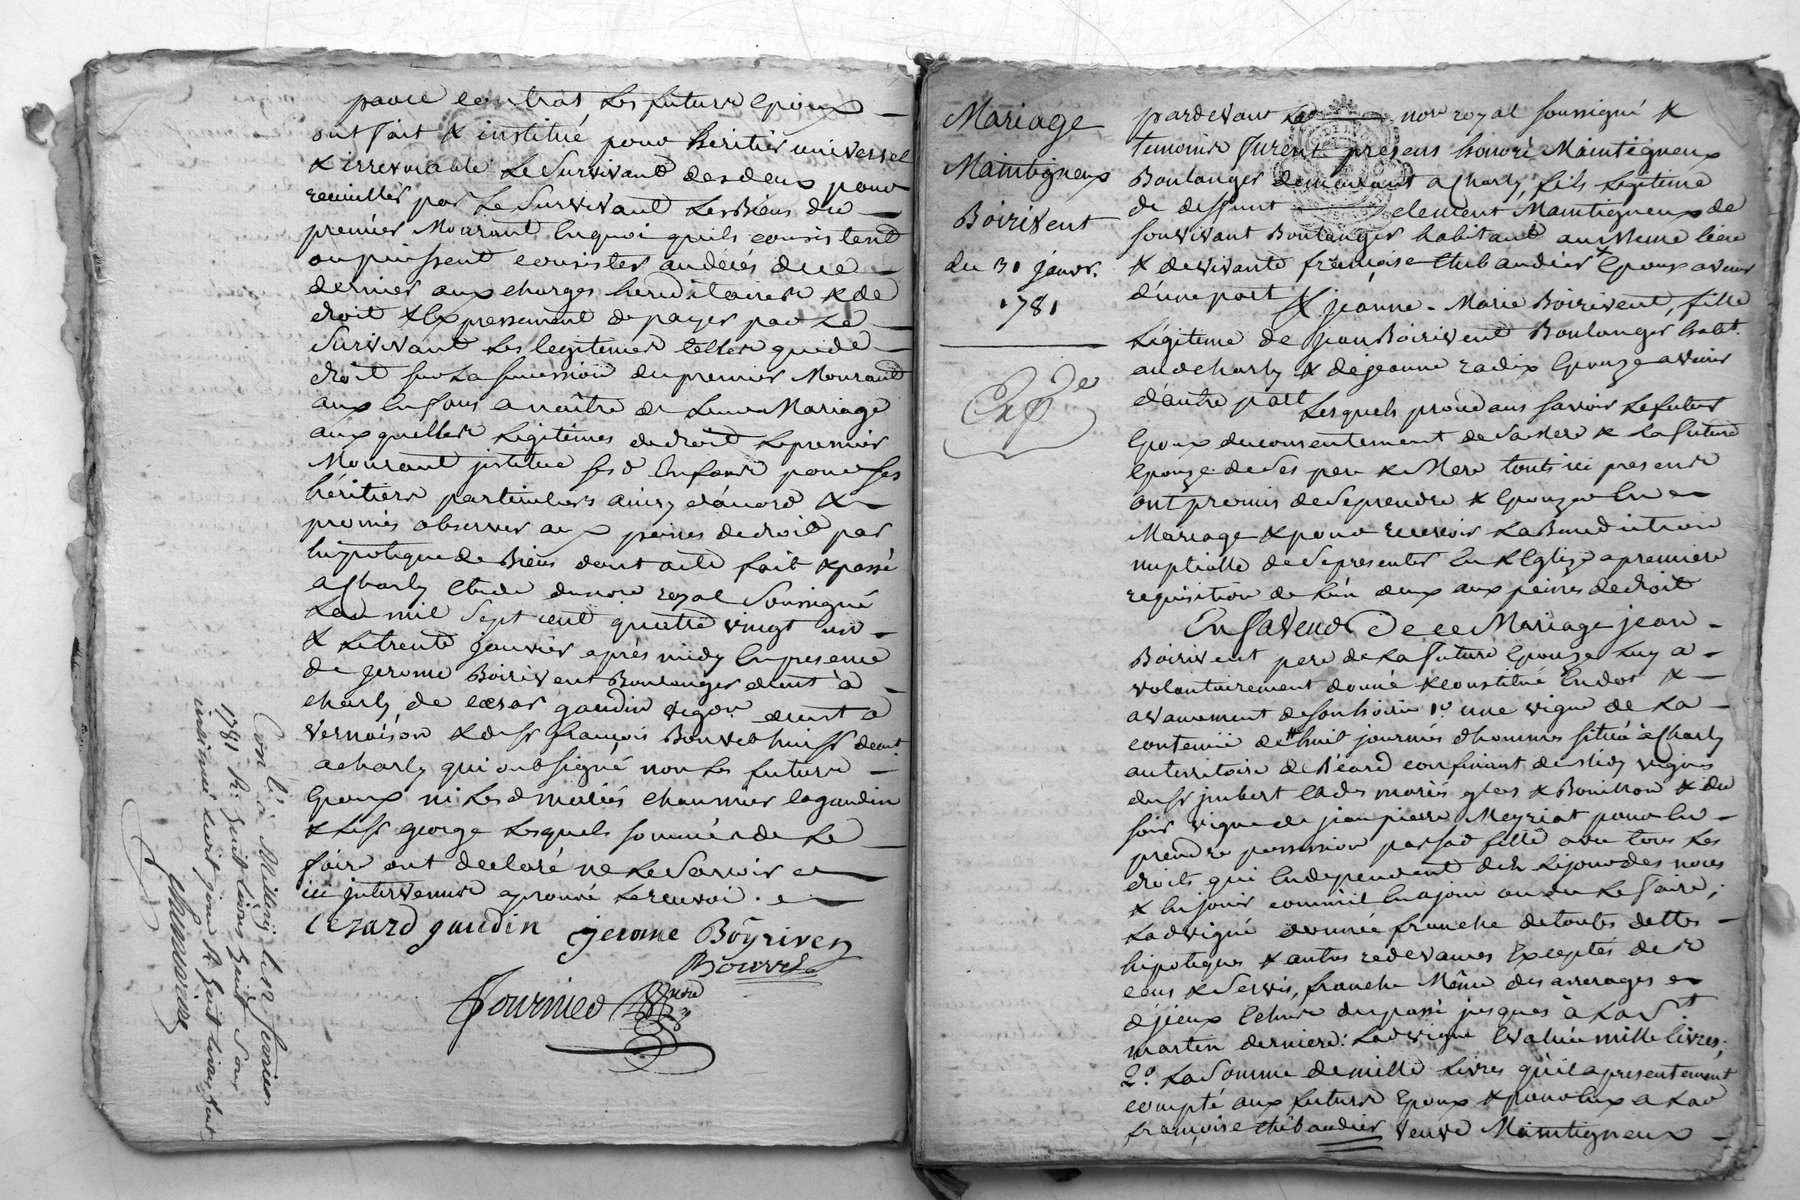 par ce contrat, les futurs epoux
ont fait & institué pour héritier universel
& irrevocable le survivant des deux pour
recueillir par le survivant les Biens du
premier Mourant en quoi quils consistent
ou puissent consister au decés de ce
dernier aux charges hereditaires & de
droit & Expressement de payer par le
survivant les legitimes telles que de
droit sur la succession du premier Mourant
aux Enfans a naître de leur Mariage
aux quelles legitimes de droit le premier
Mourant jnstitue ses d Enfans pour ses
héritiers particuliers ainsy d'acord &
promis observer aux peines de droit par
hipoteque de Biens dont acte fait & passé
a Charly Etude du nore royal soussigné
Lan mil sept cent quatre vingt un
& le trente janvier après midy En presence
de jerome Boirivent Boulanger demt à
charly, de cesar gaudin vigon demt a
vernaison & de sr françois Bouvet huissr demt
a charly qui ont signé, non les futurs
Epoux ni les d mariés chaumier la gaudin
& le sr george lesquels sommés de le
faire ont declaré ne le savoir
ici intervenus aprouvé le renvoi
cezard gaudin jerome Boÿriven
Bouvet
Fournier Nore
Con. lé à Millery le 12 fevrier
1781 R. huit livres huit sous
insinué ledit jour R huit livres
Mariage
Maintigneux
Boirivent
du 30 janvr.
1781
Expde
pardevant Le nore royal soussigné &
temoins Furent presens honoré Maintigneux
Boulanger demeurant a Charly, fils legitime
de deffunt clement Maintigneux de
son vivant Boulanger habitant au Meme lieu
& de vivante françoise thibaudier Epoux avenir
d'une part & jeanne-Marie Boirivent, fille
légitime de jean Boirivent Boulanger habt.
aud charly & de jeanne radix Epouze avenir
d'autre part Lesquels procedans savoir le futur
Epoux du consentement de sa Mere & la future
Epouze de ses pere & Mere touts ici presens
ont promis de se prendre & Epouzer En
Mariage & pour recevoir la Benediction
nuptialle de se presenter En l'Eglize a premiere
requisition de l'un deux aux peines de droit
En faveur de ce Mariage jean
Boirivent pere de la future Epouze luy a
volontairement donné & constitué En dot &
avancement de son hoirie 1º une vigne de la
contenüe de huit journés d'hommes située à Charly
au territoire de confinant de Midy vignes
du sr jnbert & des mariés & Bouillon & du
soir vigne de jean pierre Meyriat pour En
prendre possession par sad fille avec tous les
droits qui En dependent dich le jour des noces
& En jouir comme il En a joui ou du le faire,
Lad vigne donnée franche de toutes dettes
hipoteques & autres redevances Exceptés de
cens & servis, franche Même des arrerages
d'jceux Echus du passé jusques à la St.
martin derniere: Lad vigne Evaluée mille livres,
2º. La somme de mille livres qu'il a presentement
compté aux futurs Epoux & pour eux a lad
françoise thibaudier veuve Maintigneux